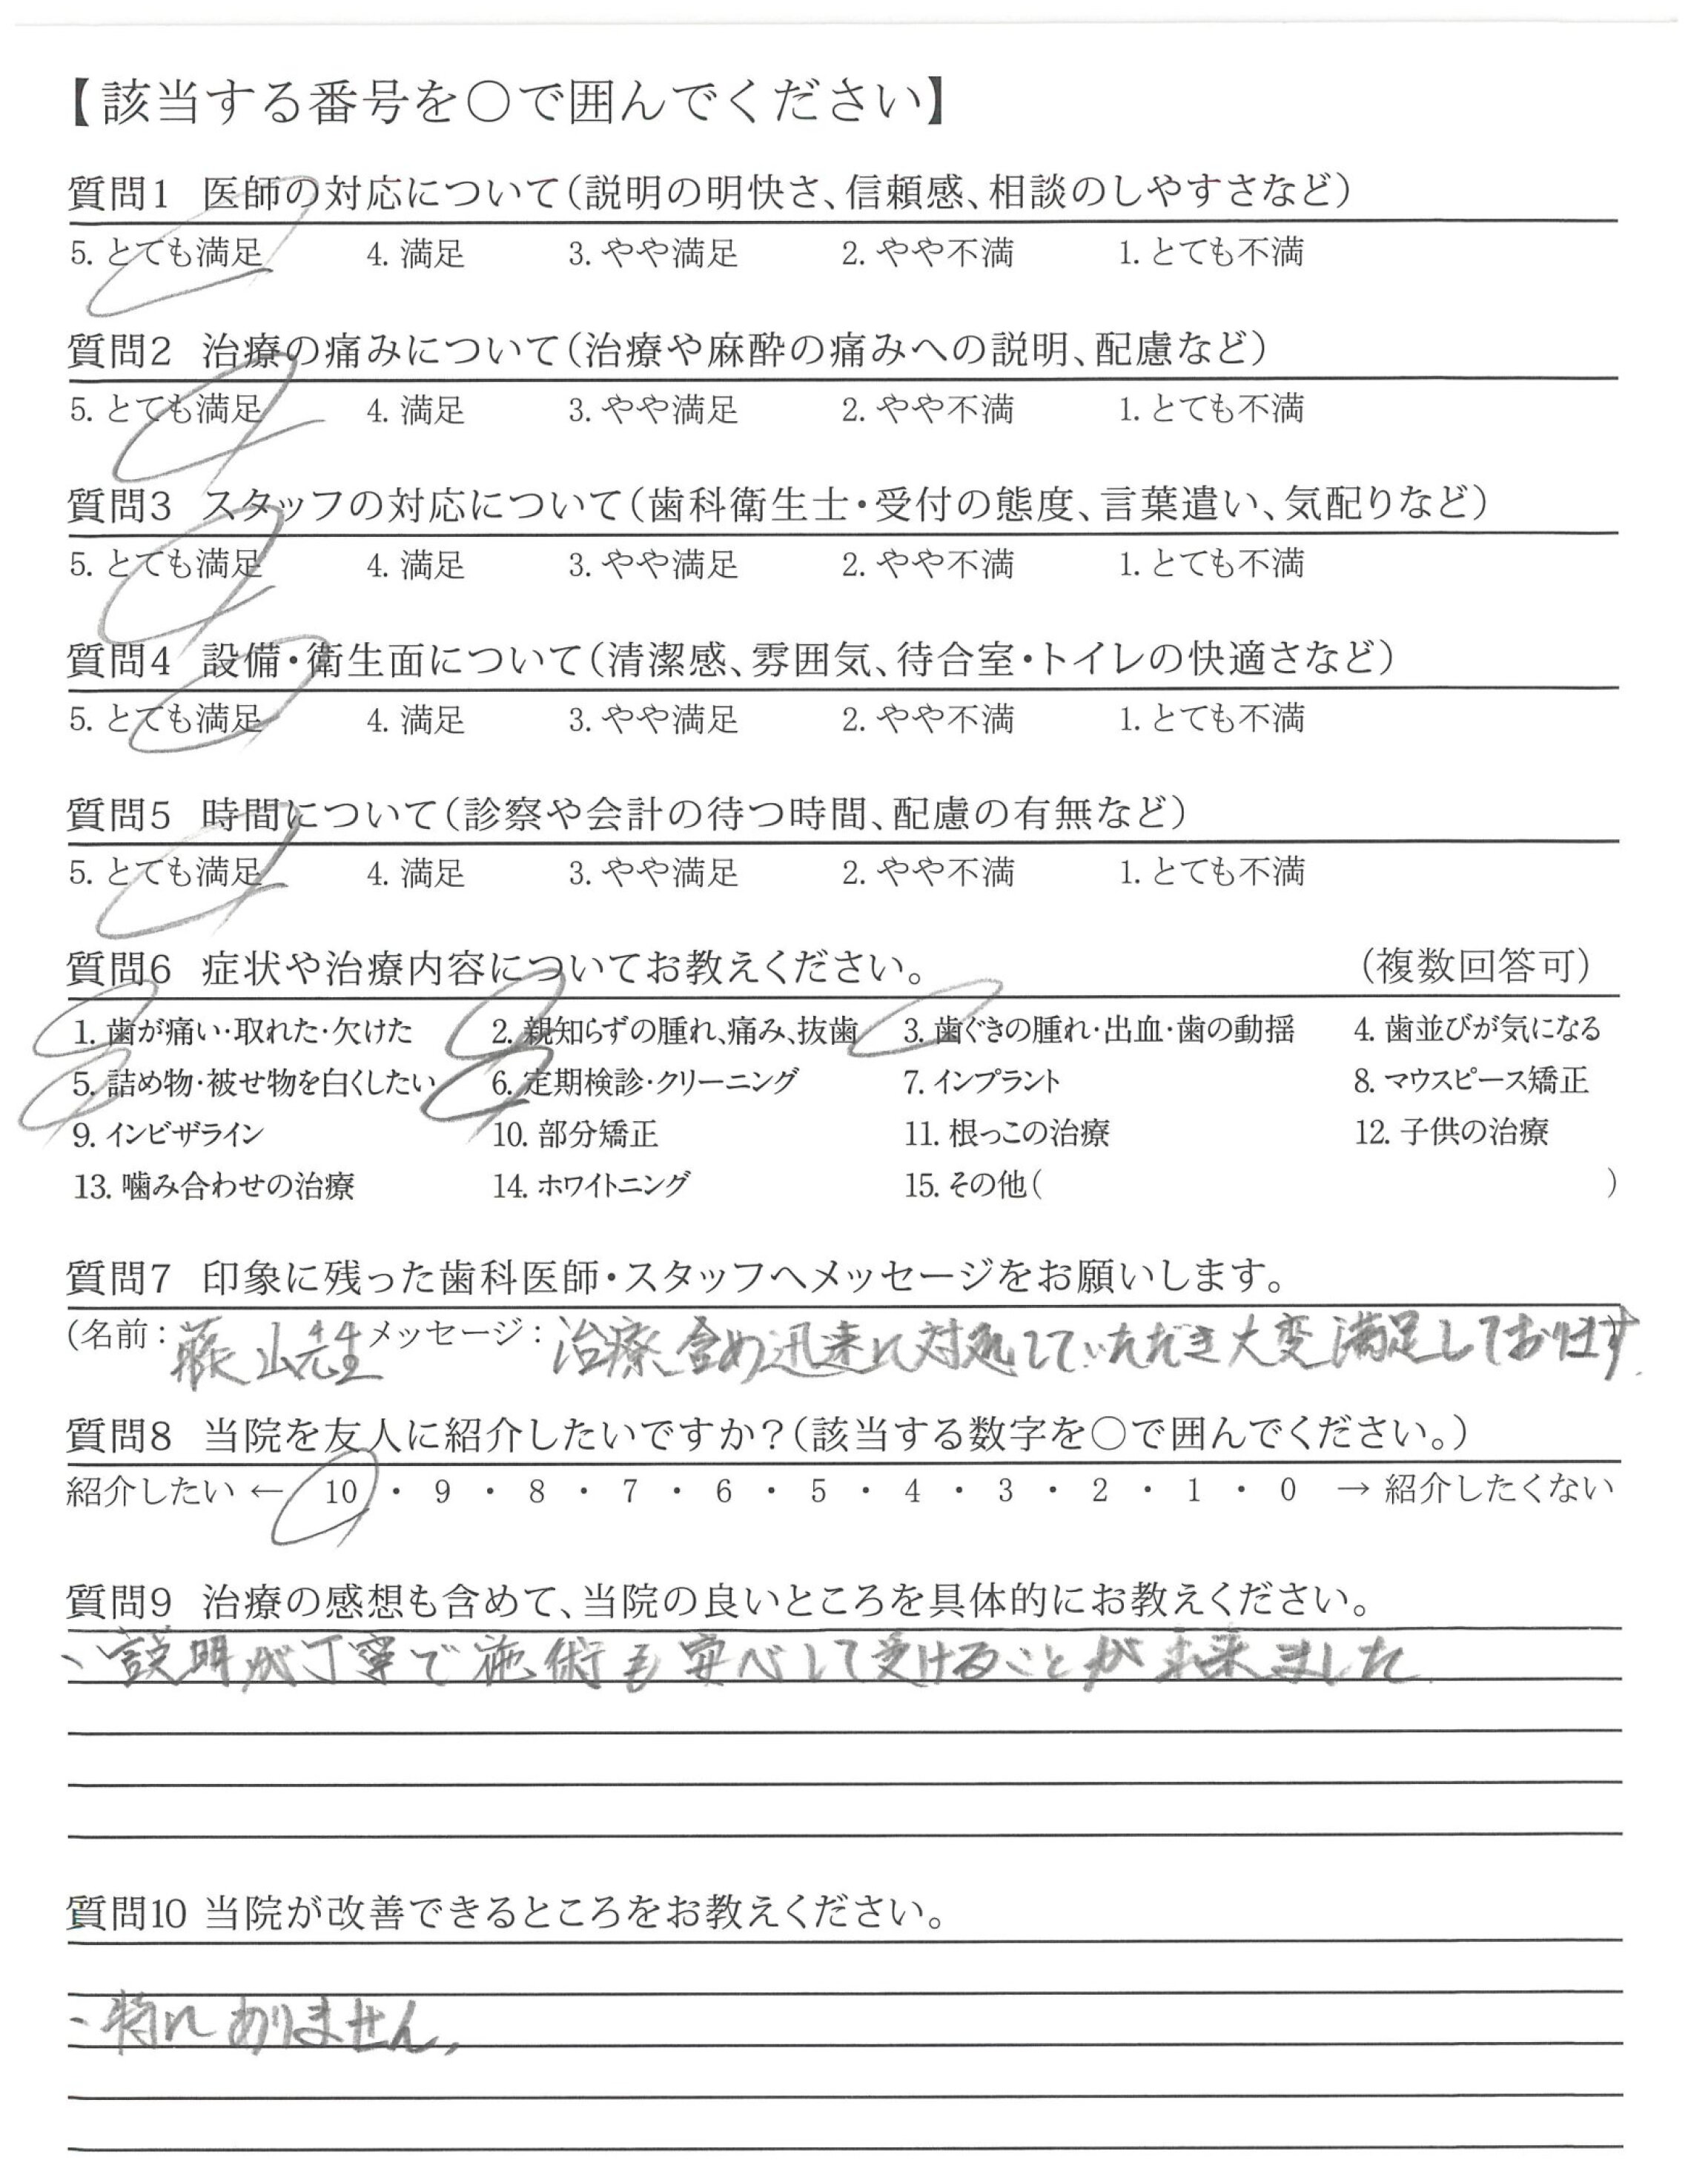 【該当する番号を○で囲んでください】
質問1 医師の対応について(説明の明快さ、信頼感、相談のしやすさなど)
5. とても満足 4. 満足 3. やや満足 2. やや不満 1. とても不満
質問2 治療の痛みについて(治療や麻酔の痛みへの説明、配慮など)
5. とても満足 4. 満足 3. やや満足 2. やや不満 1. とても不満
質問3 スタッフの対応について(歯科衛生士・受付の態度、言葉遣い、気配りなど)
5. とても満足 4. 満足 3. やや満足 2. やや不満 1. とても不満
質問4 設備・衛生面について(清潔感、雰囲気、待合室・トイレの快適さなど)
5. とても満足 4. 満足 3. やや満足 2. やや不満 1. とても不満
質問5 時間について(診察や会計の待つ時間、配慮の有無など)
5. とても満足 4. 満足 3. やや満足 2. やや不満 1. とても不満
質問6 症状や治療内容についてお教えください。 (複数回答可)
1. 歯が痛い・取れた・欠けた 2. 親知らずの腫れ、痛み、抜歯 3. 歯ぐきの腫れ・出血・歯の動揺 4. 歯並びが気になる
5. 詰め物・被せ物を白くしたい 6. 定期検診・クリーニング 7. インプラント 8. マウスピース矯正
9. インビザライン 10. 部分矯正 11. 根っこの治療 12. 子供の治療
13. 噛み合わせの治療 14. ホワイトニング 15. その他( )
質問7 印象に残った歯科医師・スタッフへメッセージをお願いします。
(名前: 藤山先生 メッセージ: 治療含め迅速に対処していただき大変満足しております.
質問8 当院を友人に紹介したいですか?(該当する数字を○で囲んでください。)
紹介したい ← 10 ・ 9 ・ 8 ・ 7 ・ 6 ・ 5 ・ 4 ・ 3 ・ 2 ・ 1 ・ 0 → 紹介したくない
質問9 治療の感想も含めて、当院の良いところを具体的にお教えください。
、説明が丁寧で施術も安心して受けることが出来ました.
質問10 当院が改善できるところをお教えください。
、特にありません,